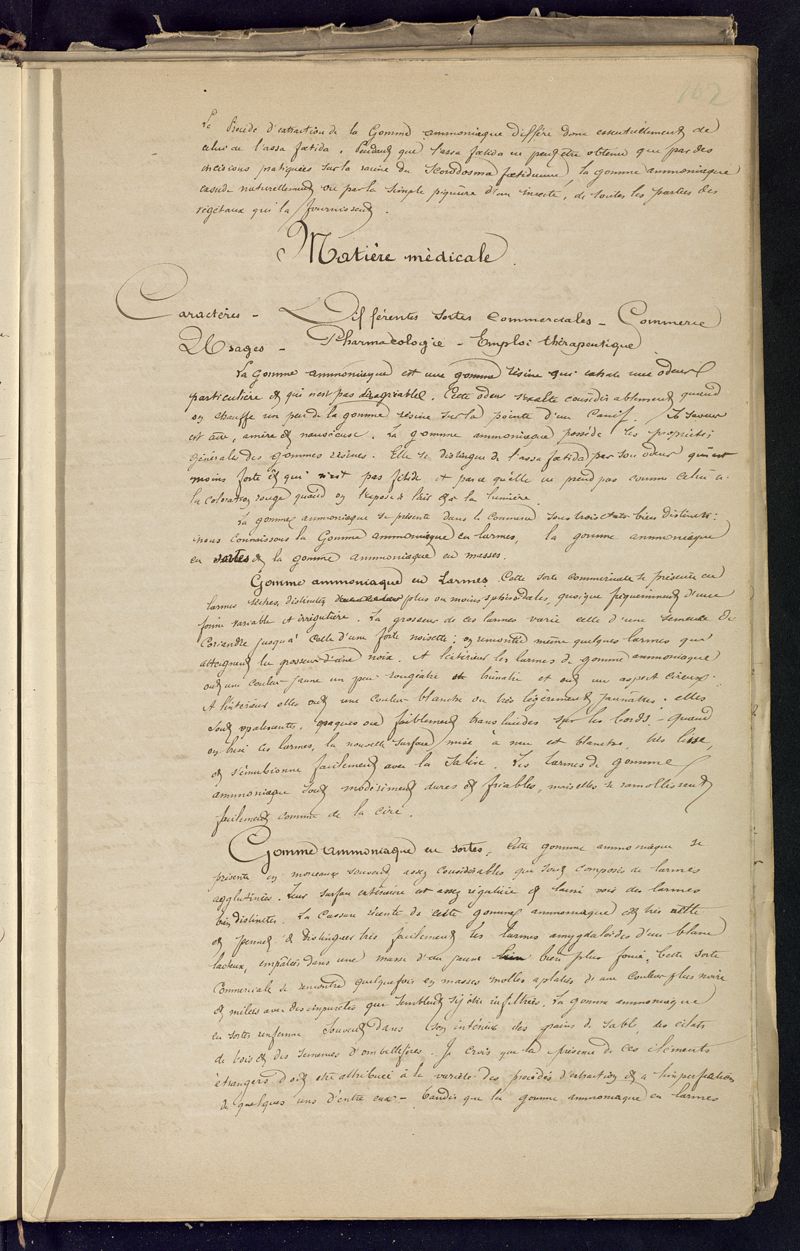 102
Le Procédé d'extraction de la Gomme ammoniaque diffère donc essentiellement de
celui de l'assa fœtida. Pendant que l'assa fœtida ne peut être obtenu que par des
incisions pratiquées sur la racine du Scorodosma fœtidum, la gomme ammoniaque
exsude naturellement ou par la simple piqûre d'un insecte, de toutes les parties des
végétaux qui la fournissent.
Matière médicale.
Caractères - Différentes sortes commerciales - Commerce
Usages - Pharmacologie - Emploi thérapeutique
La Gomme ammoniaque est une gomme résine qui exhale une odeur
particulière et qui n'est pas désagréable. Cette odeur s'exalte considérablement quand
on chauffe un peu de la gomme résine sur la pointe d'un Canif. Sa saveur
est âcre, amère et nauséeuse. La gomme ammoniaque possède les propriétés
générales des gommes résines. Elle se distingue de l'assa fœtida par son odeur qui est
moins forte et qui n'est pas fétide et parce qu'elle ne prend pas comme celui-ci
la coloration rouge quand on l'expose à l'air et à la lumière.
La gomme ammoniaque se présente dans le Commerce sous trois états bien distincts:
nous connaissons la Gomme ammoniaque en larmes, la gomme ammoniaque
en sortes et la gomme ammoniaque en masses.
Gomme ammoniaque en Larmes. Cette sorte commerciale se présente en
larmes sèches, distinctes plus ou moins sphéroïdales, quoique fréquemment d'une
forme variable et irrégulière. La grosseur de ces larmes varie celle d'une semence de
Coriandre jusqu'à celle d'une forte noisette; on rencontre même quelques larmes qui
atteignent la grosseur d'une noix. A l'extérieur les larmes de gomme ammoniaque
ont une couleur jaune un peu rougeâtre et brunâtre et ont un aspect cireux.
A l'intérieur elles ont une couleur blanche ou très légèrement jaunâtre: elles
sont opalescentes, opaques ou faiblement translucides sur les bords. Quand
on brise les larmes, la nouvelle surface mise à nu est blanche, très lisse,
et s'émulsionne facilement avec la salive. Les larmes de gomme
ammoniaque sont modérément dures et friables, mais elles se ramollissent
facilement comme de la cire.
Gomme ammoniaque en sortes. Cette gomme ammoniaque se
présente en morceaux souvent assez considérables qui sont composés de larmes
agglutinées. Leur surface extérieure est assez régulière et laisse voir des larmes
bien distinctes. La Cassure récente de cette gomme ammoniaque est très nette
et permet de distinguer très facilement les larmes amygdaloïdes d'un blanc
laiteux, empâtées dans une masse d'un jaune bien plus foncé. Cette sorte
Commerciale se rencontre quelquefois en masses molles aplaties d'une couleur plus noire
et mêlées avec des impuretés qui semblent s'y être infiltrées. La gomme ammoniaque
en sortes renferme souvent dans son intérieur des grains de sable, des éclats
de bois et des semences d'ombellifères. Je crois que la présence de ces éléments
étrangers doit être attribuée à la variété des procédés d'extraction et à l'imperfection
de quelques uns d'entre eux - tandis que la gomme ammoniaque en larmes